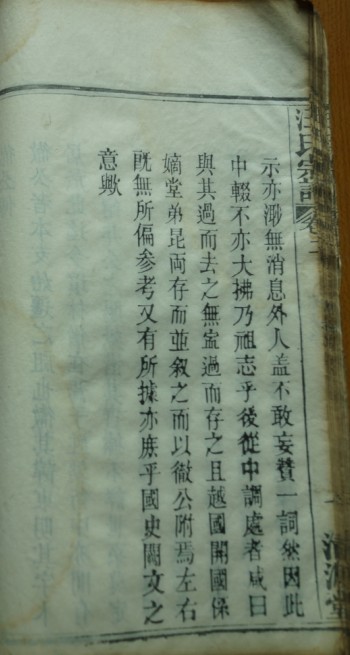 汪氏宗譜 卷二
清源堂
示亦渺無消息外人盖不敢妄贊一詞然因此
中輟不亦大拂乃祖志乎後從中調處者咸曰
與其過而去之無寧過而存之且越國開國係
嫡堂弟昆両存而並叙之而以徽公附焉左右
既無所偏參考又有所據亦庶乎國史闕文之
意歟